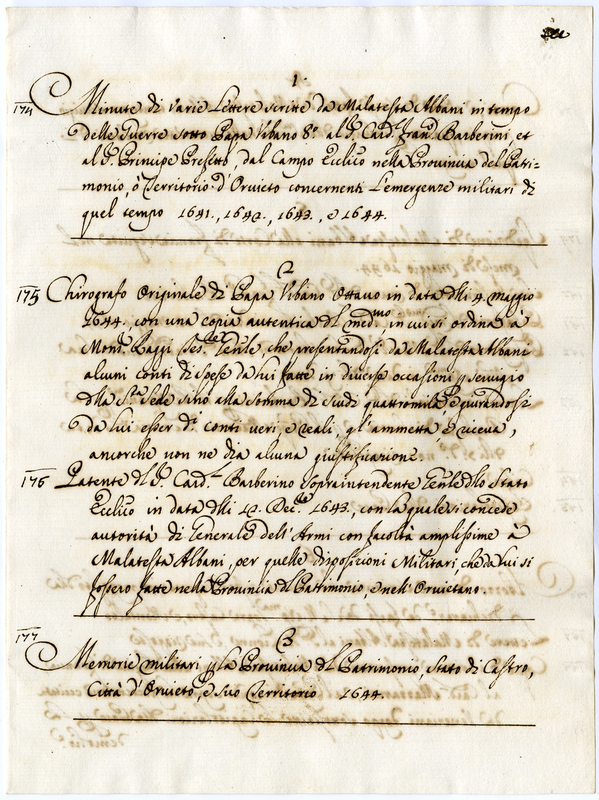 1.
174 Minute di varie Lettere scritte da Malatesta Albani in tempo
delle Guerre sotto Papa Vrbano 8.º al Sig. Card. Fran.º Barberini, et
al Sig. Principe Prefetto, dal Campo Ecclico nella Provincia del Patri-
monio, ò Territorio d'Orvieto concernenti l'emergenze militari di
quel tempo 1641., 1642., 1643., e 1644.
2
175 Chirografo Originale di Papa Vrbano Ottauo in data dlli 4. Maggio
1644. con una copia autentica del med.mo, in cui si ordina à
Mons.r Raggi Tes. Genle, che presentandosi da Malatesta Albani
alcuni conti di spese da lui fatte in diverse occasioni p servigio
della S.ta Sede sino alla somma di scudi quattromila, e giurandosi
da lui esser d.i conti veri, e reali, gl'ammetta, e riceva,
ancorche non ne dia alcuna giustificazione.
176 Patente del Sig. Card.l Barberino Sopraintendente Genle dllo Stato
Ecclico in data dlli 12. Dec.bre 1643., con la quale si concede
autorità di Generale dell'Armi con facoltà amplissime à
Malatesta Albani, per quelle disposizioni Militari, che da lui si
fossero fatte nella Provincia del Patrimonio, e nell'Orvietano.
3
177 Memorie militari p la Provincia del Patrimonio, Stato di Castro,
Città d'Orvieto, e suo Territorio 1644.